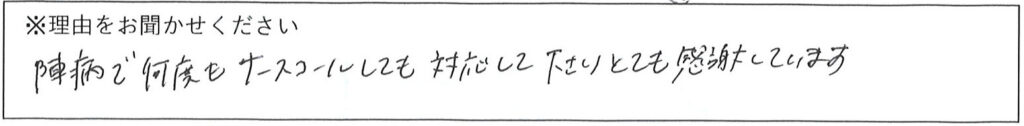 ※理由をお聞かせください
陣病で何度もナースコールしても対応して下さりとても感謝しています